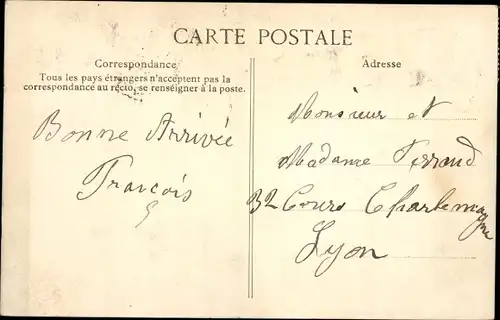 CARTE POSTALE
Correspondance
Tous les pays étrangers n'acceptent pas la
correspondance au recto, se renseigner à la poste.
Bonne Arrivée
François
Adresse
Monsieur et
Madame Ferrand
Cours Charlemagne
Lyon